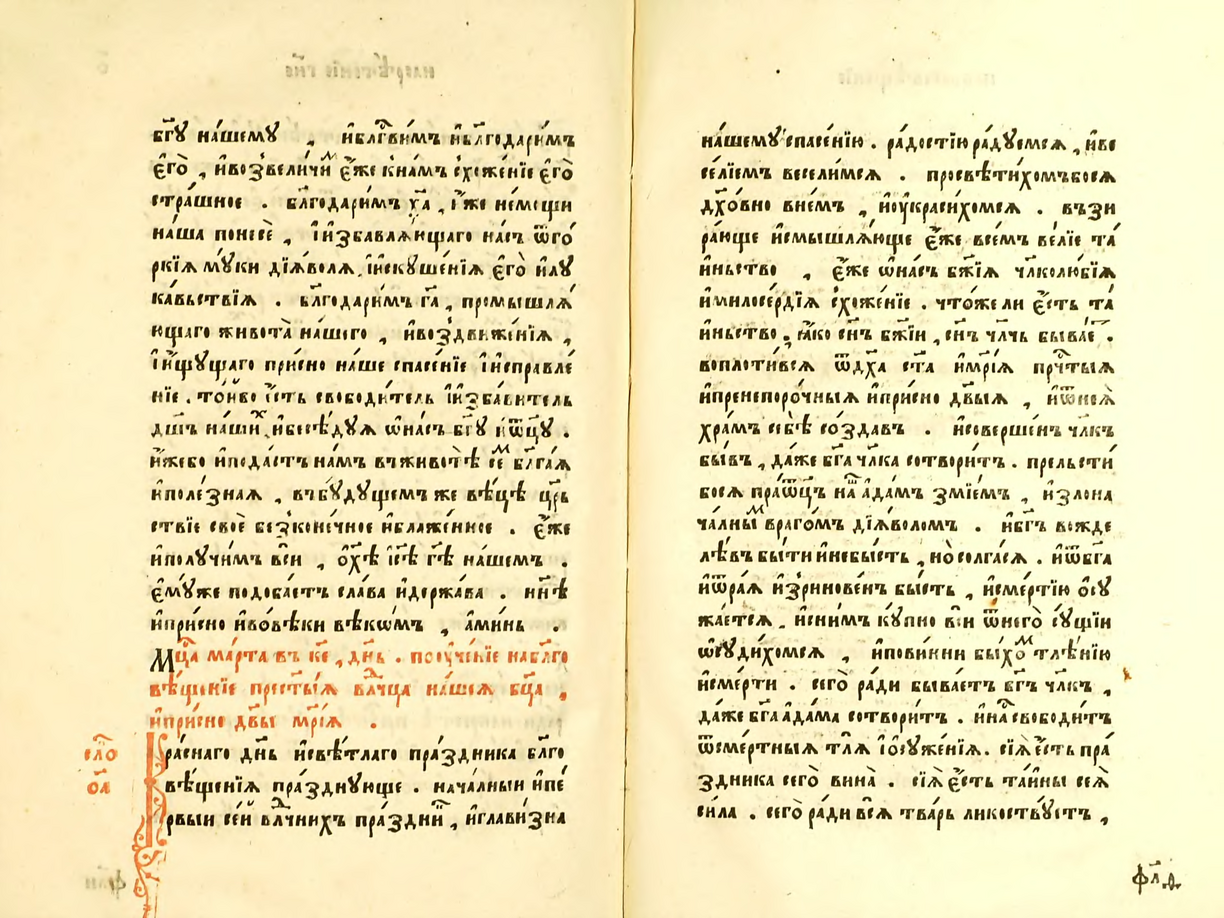 бг҃ꙋ на́шемꙋ , и҆блⷭ҇гви́мъ и҆бл҃годари́мъ
є҆го̀ , и҆возвели́чиⷨ є҆́же кна́мъ схоже́нїе є҆го̀
стра́шное . бл҃годари́мъ хⷭ҇а̀ , и҆́же не́мощи
на́ша понесѐ , і҆избавлѧ́ющаго на́съ ѿго́
ркїѧ мꙋ́ки дїѧ́волѧ , і҆искꙋше́нїѧ є҆го̀ и҆лꙋ
ка́вьствїѧ . бл҃годари́мъ гⷭ҇а , промышлѧ́
ющаго живота̀ на́шего , и҆воздвиже́нїѧ ,
і҆и҆́щꙋщаго при́сно на́ше спасе́нїе і҆исправле́
нїе . то́йбо є҆́сть свободи́тель і҆изба́витель
дш҃ъ на́шиⷯ , и҆бесѣ́дꙋѧ ѡ҆на́съ бг҃ꙋ и҆ѿц҃ꙋ .
и҆́жебо и҆пода́стъ на́мъ вживотѣ̀ сеⷨ бл҃га́ѧ
и҆поле́знаѧ , вбꙋ́дꙋщемъ же вѣ́цѣ црⷭ҇ь
ствїе своѐ безконе́чное и҆блаже́нное . є҆́же
и҆полꙋчи́мъ всѝ , ѻ҆хⷭ҇ѣ̀ і҆с҃ѣ гдⷭ҇ѣ на́шемъ .
є҆мꙋ́же подоба́етъ сла́ва и҆держа́ва . нн҃ѣ
и҆при́сно и҆вовѣ́ки вѣкѡ́мъ , а҆ми́нь .
Мцⷭ҇а ма́рта въ к҃е , дн҃ь . поꙋче́нїе набл҃го
вѣ́щенїе прест҃ы́ѧ влⷣчца на́шеѧ бц҃а ,
и҆при́сно дв҃ы мр҃і́ѧ .
сло́
о҃а
Кра́снаго дн҃ѝ и҆свѣ́тлаго пра́здника бл҃го
вѣ́щенїѧ пра́зднꙋюще . нача́лныи и҆пе́
рвыи се́й влⷣчнихъ пра́здниⷦ , и҆главизна
на́шемꙋ спасе́нїю . ра́достїю ра́дꙋемсѧ , и҆ве
се́лїемъ весели́мсѧ . просвѣти́хомъбосѧ
дх҃о́вно вне́мъ , и҆оу҆краси́хомсѧ . възи
ра́юще и҆смышлѧ́юще є҆́же всѣ́мъ ве́лїе та́
и҆ньство , є҆́же ѡ҆на́съ бж҃їѧ чл҃колю́бїѧ
и҆милосе́рдїѧ схоже́нїе . что́же ли є҆́сть та́
и҆ньство , ꙗ҆́ко сн҃ъ бж҃їи , сн҃ъ чл҃чь быва́еⷮ .
воплоти́всѧ ѿдх҃а ст҃а и҆мр҃їѧ прⷱ҇тыѧ
и҆пренепоро́чныѧ и҆при́сно дв҃ыѧ , и҆ѿнеѧ̀
хра́мъ себѣ̀ со́здавъ . и҆соверше́нъ чл҃къ
бы́въ , да́же бг҃а чл҃ка сотвори́тъ . прельсти́
босѧ пра́ѿц҃ъ на́ⷲ а҆да́мъ змі́емъ , и҆злона
ча́лныⷨ враго́мъ дїѧ́воломъ . и҆бг҃ъ вожде
лѣ́въ бы́ти и҆небы́сть , но̀ солга́сѧ . и҆ѿбг҃а
и҆ѿра́ѧ и҆зринове́нъ бы́сть , и҆сме́ртїю ѻ҆сꙋ
жа́етсѧ . и҆сни́мъ кꙋ́пно всѝ ѿнего̀ сꙋ́щїи
ѡ҆сꙋди́хомсѧ , и҆пови́нни бы́хоⷨ тлѣ́нїю
и҆сме́рти . сего̀ ра́ди быва́етъ бг҃ъ чл҃къ ,
да́же бг҃а а҆да́ма сотвори́тъ . и҆на́съ свободи́тъ
ѿсме́ртныѧ тлѧ̀ і҆ѻсꙋже́нїѧ . сїѧ̀ є҆́сть пра́
здника сего̀ вина̀ . сїѧ̀ є҆́сть та́йны сеѧ̀
си́ла . сего̀ ра́ди всѧ̀ тва́рь ликоствꙋ́етъ ,
фл҃ѳ.